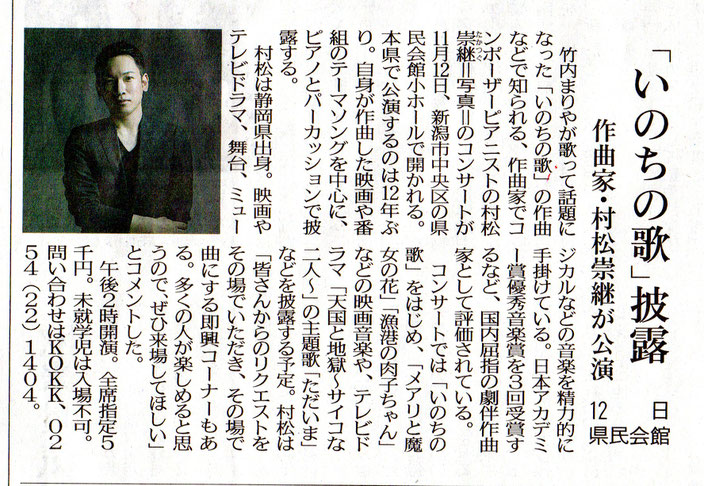 「いのちの歌」披露
作曲家・村松崇継が公演
12日
県民会館
竹内まりやが歌って話題に
なった「いのちの歌」の作曲
などで知られる、作曲家でコ
ンポーザーピアニストの村松
崇継＝写真＝のコンサートが
たかつぐ
11月12日、新潟市中央区の県
民会館小ホールで開かれる。
本県で公演するのは12年ぶ
り。自身が作曲した映画や番
組のテーマソングを中心に、
ピアノとパーカッションで披
露する。
村松は静岡県出身。映画や
テレビドラマ、舞台、ミュー
ジカルなどの音楽を精力的に
手掛けている。日本アカデミ
ー賞優秀音楽賞を3回受賞す
るなど、国内屈指の劇伴作曲
家として評価されている。
コンサートでは「いのちの
歌」をはじめ、「メアリと魔
女の花」「漁港の肉子ちゃん」
などの映画音楽や、テレビド
ラマ「天国と地獄～サイコな
二人～」の主題歌「ただいま」
などを披露する予定。村松は
「皆さんからのリクエストを
その場でいただき、その場で
曲にする即興コーナーもあ
る。多くの人が楽しめると思
うので、ぜひ来場してほしい」
とコメントした。
午後2時開演。全席指定5
千円。未就学児は入場不可。
問い合わせはKOKK、02
54（22）1404。